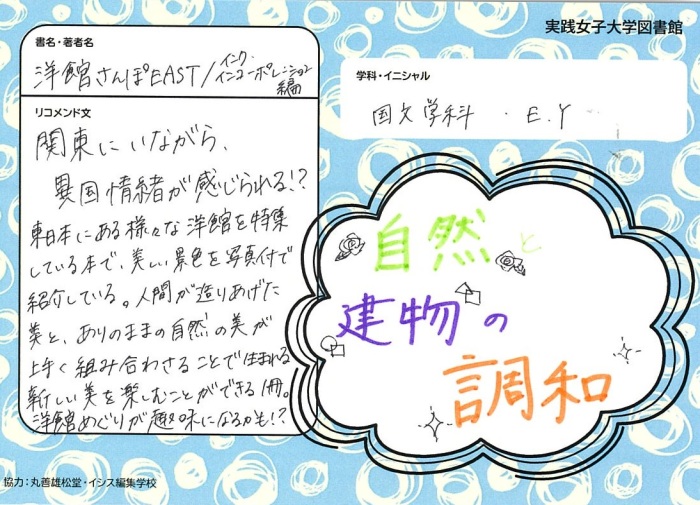 実践女子大学図書館
書名・著者名
洋館さんぽEAST/インク・
インコーポレーション
編
学科・イニシャル
国文学科 . E.Y
リコメンド文
関東にいながら、
異国情緒が感じられる!?
東日本にある様々な洋館を特集
している本で、美しい景色を写真付で
紹介している。人間が造りあげた
美と、ありのままの自然の美が
上手く組み合わさることで生まれる
新しい美を楽しむことができる1冊。
洋館めぐりが趣味になるかも!?
自然と
建物の
調和
協力:丸善雄松堂・イシス編集学校